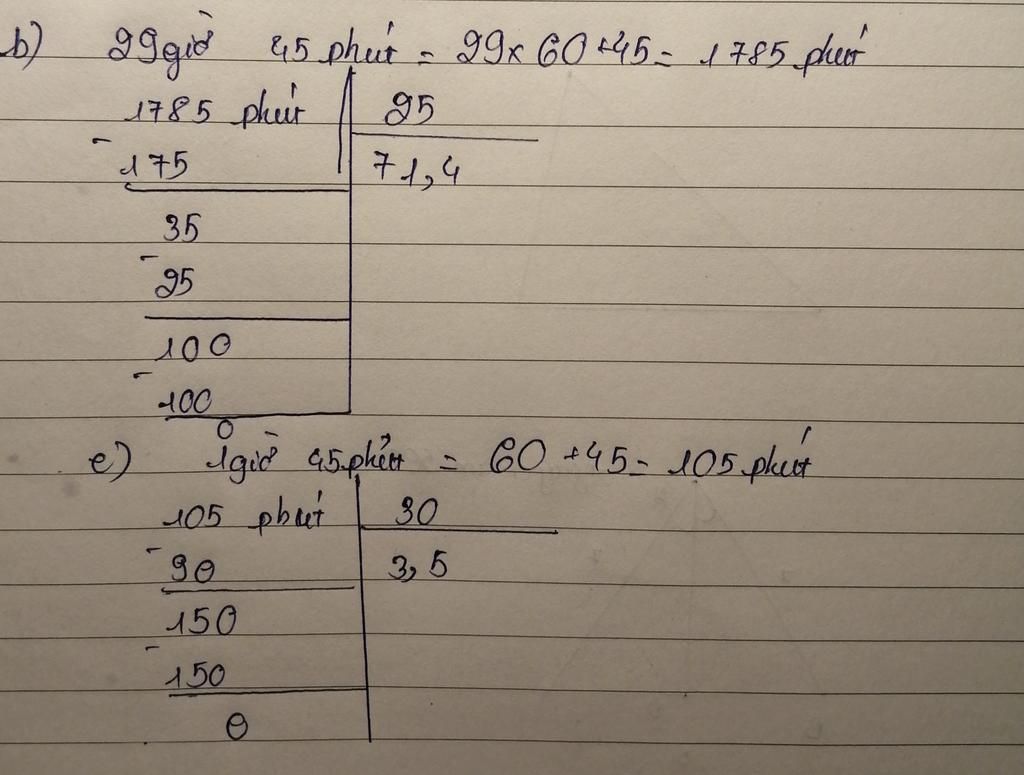 b) 29 giờ 45 phút = 29 x 60 + 45 = 1785 phút
1785 phút 25
- 175 71,4
35
- 25
100
- 100
0
e) 1 giờ 45 phút = 60 + 45 = 105 phút
105 phút 30
- 90 3,5
150
- 150
0